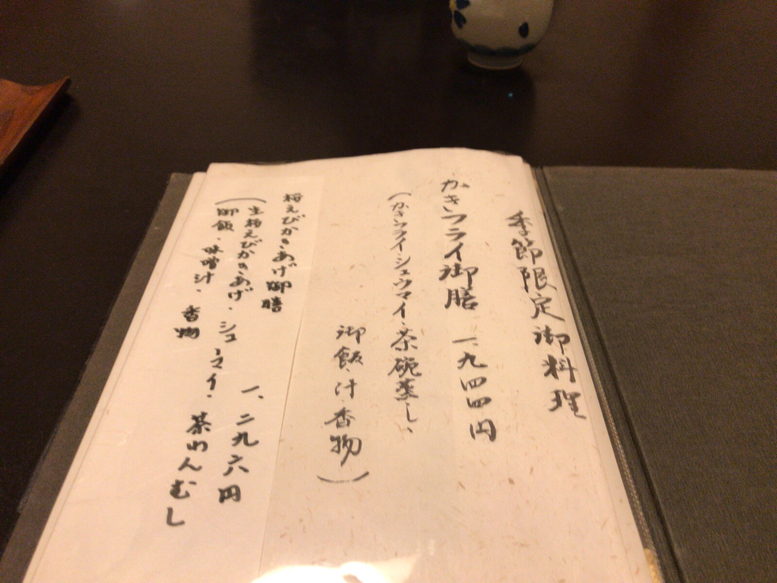 季節限定御料理
かきフライ御膳 一、九四四円
(かきフライ・シュウマイ・茶碗蒸し、
御飯・汁・香物)
桜えびかきあげ御膳
一、二九六円
(生桜えびかきあげ・シュウマイ・茶わんむし
御飯・味噌汁・香物